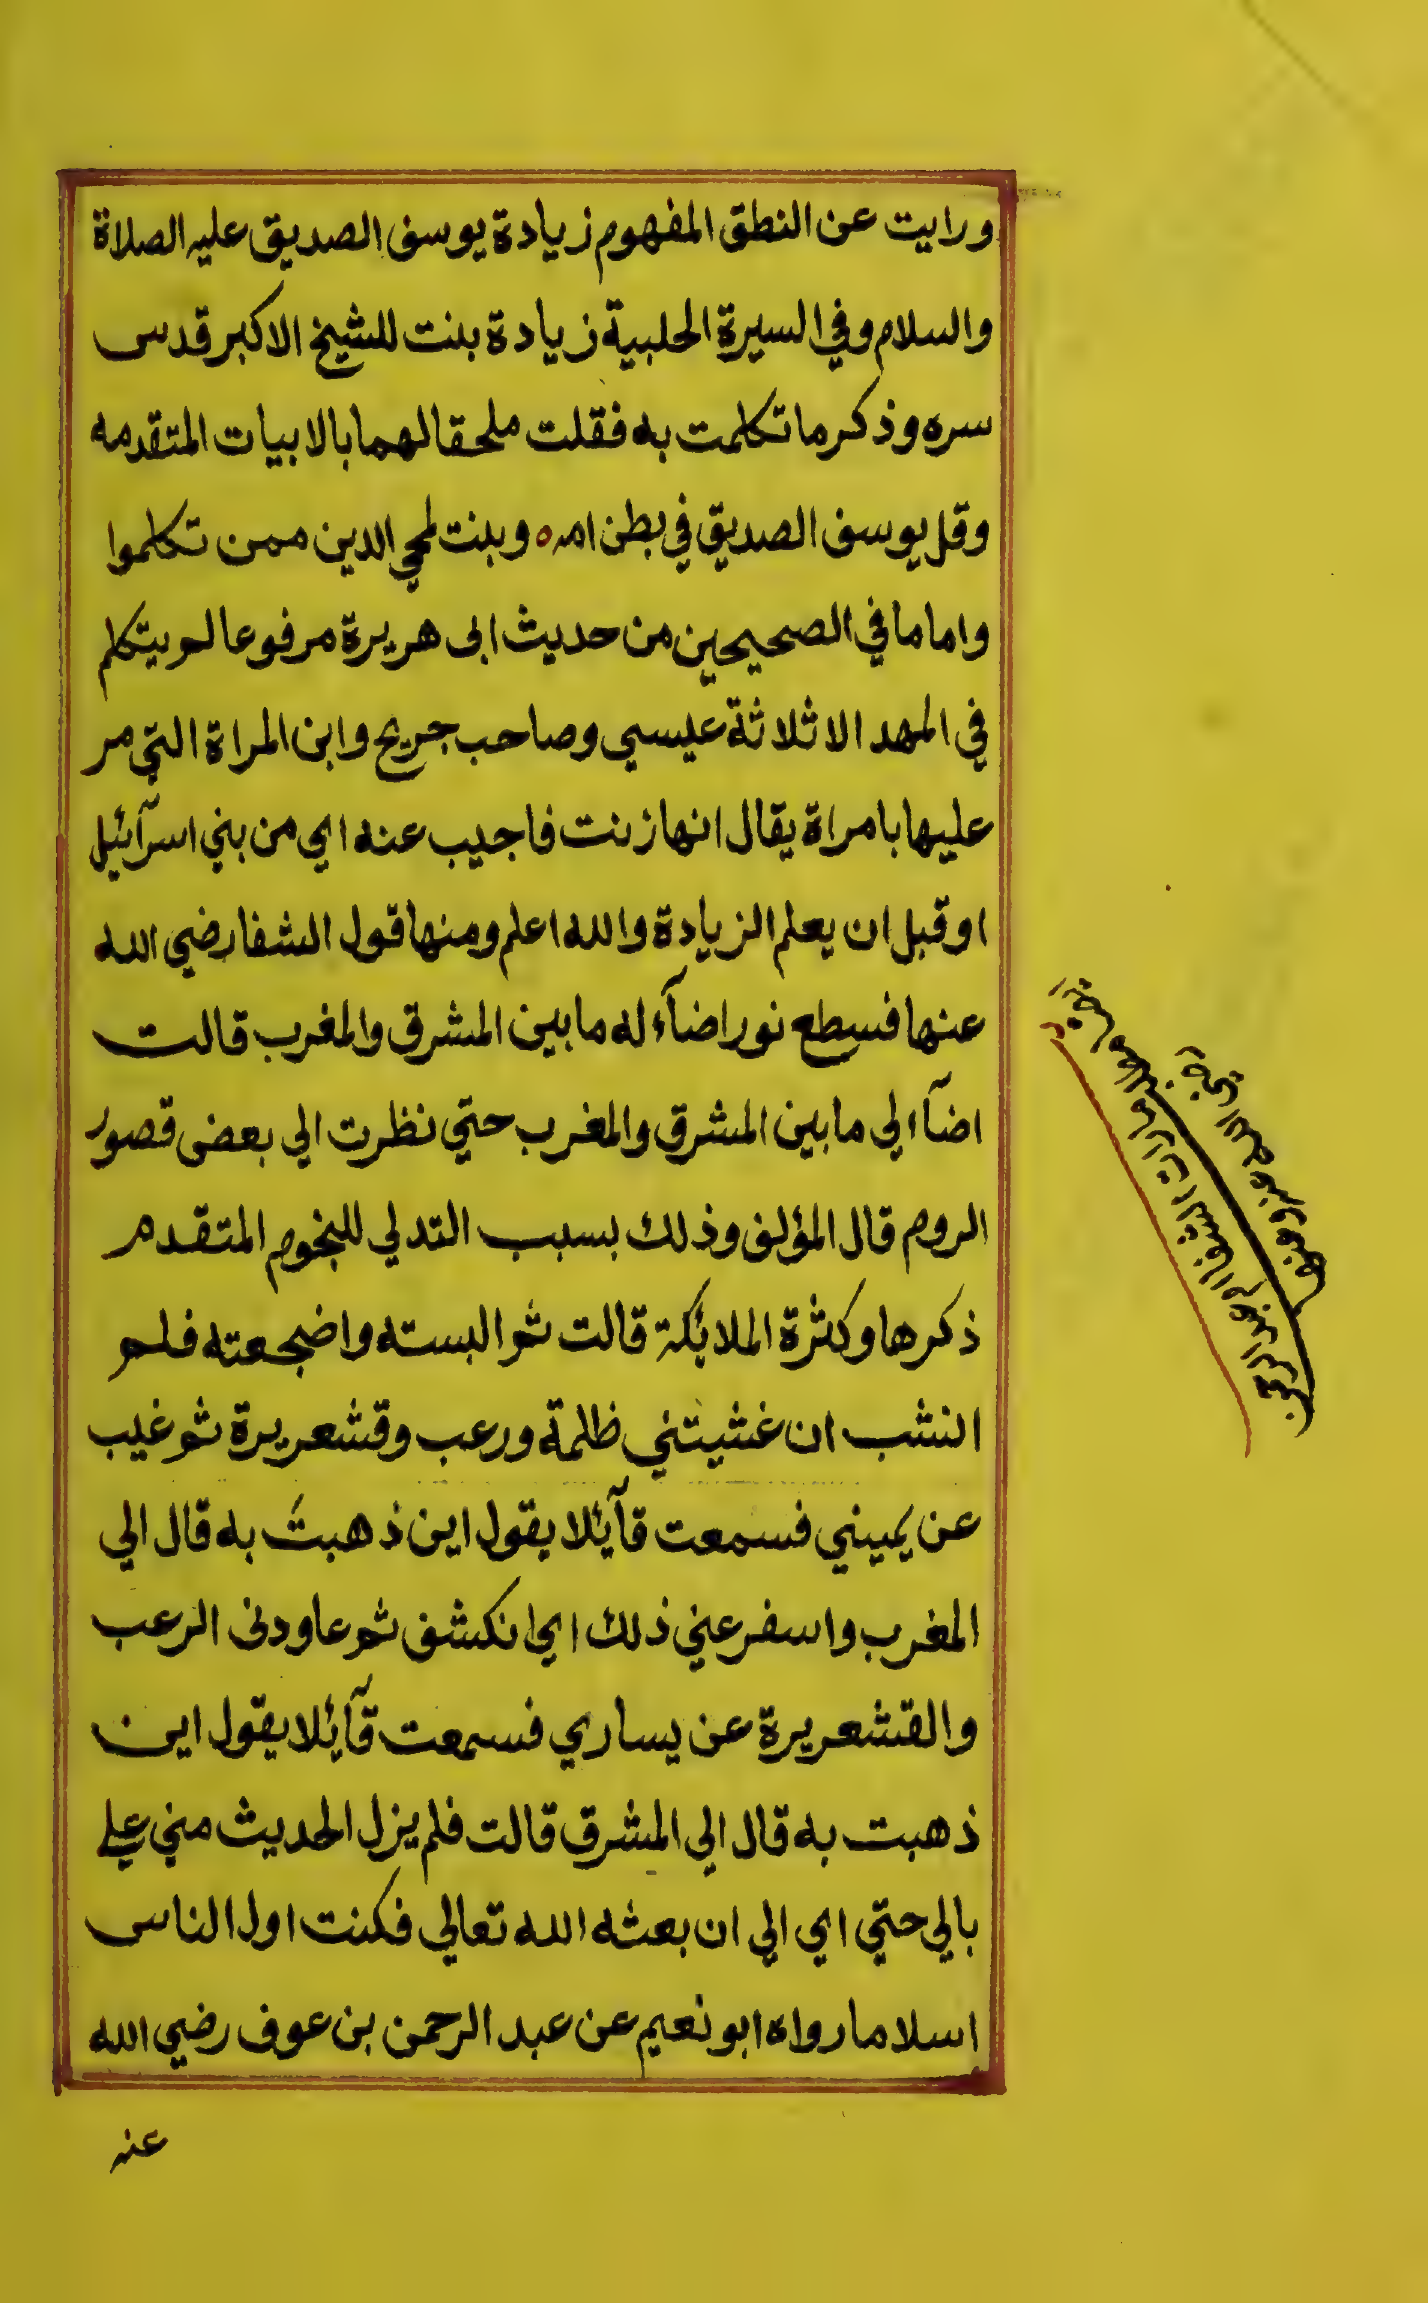 ورايت عن النطق المفهوم زيادة يوسف الصديق عليه الصلاة
والسلام وفي السيرة الحلبية زيادة بنت للشيخ الاكبر قدس
سره وذكر ما تكلمت به فقلت ملحقا لهما بالابيات المتقدمه
وقل يوسف الصديق في بطن امه ه وبنت لمحي الدين ممن تكلموا
واما ما في الصحيحين من حديث ابى هريرة مرفوعا لم يتكلم
في المهد الا ثلاثة عيسي وصاحب جريج وابن المراة التي مر
عليها بامراة يقال انها زنت فاجيب عنه اي من بني اسرآئيل
او قبل ان يعلم الزيادة والله اعلم ومنها قول الشفا رضي الله
عنها فسطع نور اضآء له ما بين المشرق والمغرب قالت
اضآ الي ما بين المشرق والمغرب حتي نظرت الي بعض قصور
الروم قال المؤلف وذلك بسبب التدلي للنجوم المتقدم
ذكرها وكثرة الملائكة قالت ثم البسته واضجعته فلم
انشب ان غشيتني ظلمة ورعب وقشعريرة ثم غيب
عن يميني فسمعت قآئلا يقول اين ذهبت به قال الي
المغرب واسفر عني ذلك اي انكشف ثم عاودنى الرعب
والقشعريرة عن يساري فسمعت قآئلا يقول اين
ذهبت به قال الي المشرق قالت فلم يزل الحديث مني علي
بالي حتي اي الي ان بعثه الله تعالي فكنت اول الناس
اسلاما رواه ابو نعيم عن عبد الرحمن بن عوف رضي الله
عنه
الشفا ام عبد الرحمن
رضي الله عنه وعنها